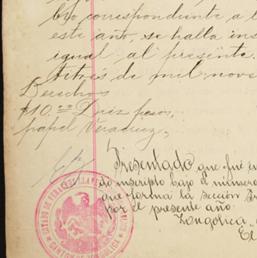 lyo correspondiente a l
este año, se halla ins
igual al presente.
titres de mil nove
Derechos
$10.00 Diez pesos,
papel Veracruz,
Presentado que fué en
do inscripto bajo el número
que forma la sección Pr
por el presente año.
Zongolica,
El